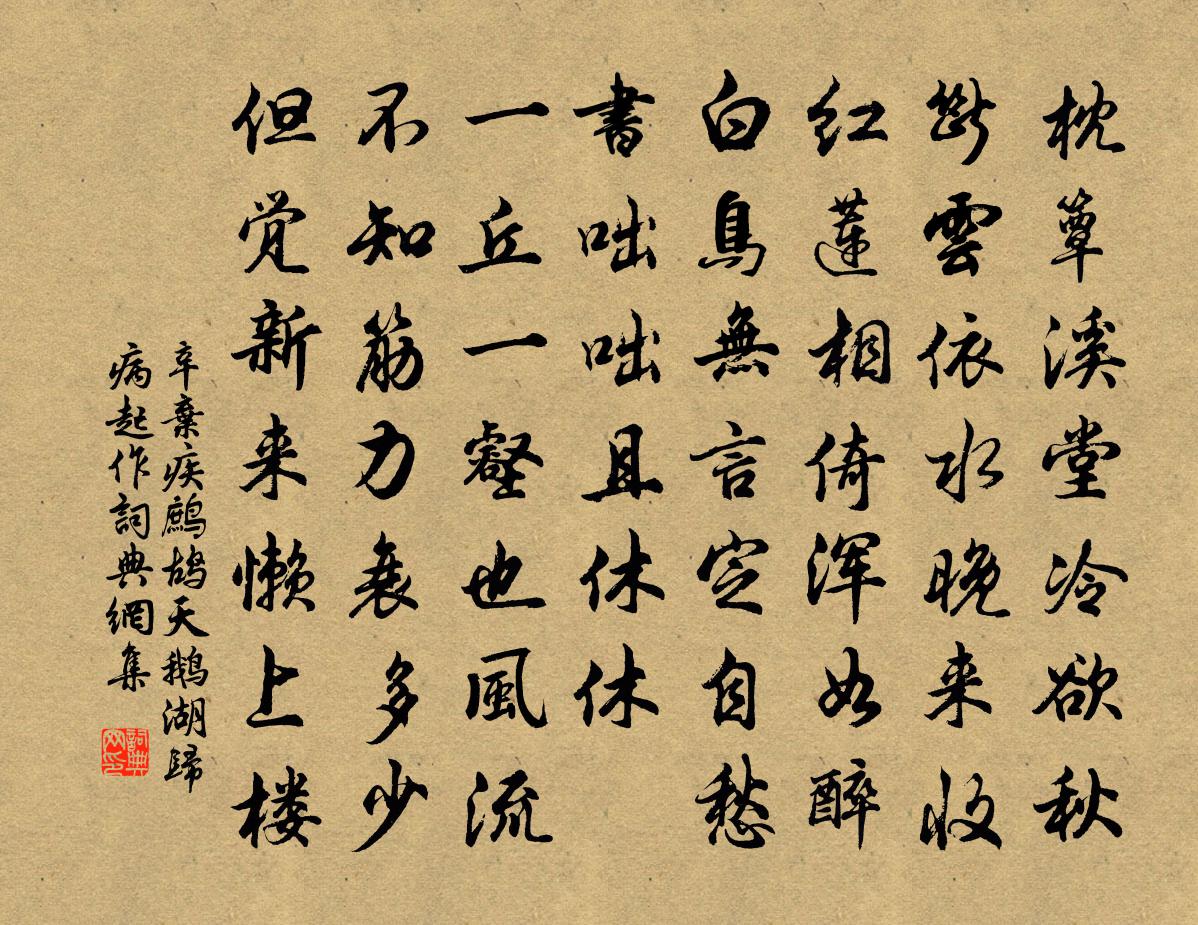 枕簟溪堂冷欲秋
斷雲依水晚来收
红蓮相倚浑如醉
白鳥無言定自愁
書咄咄且休休
一丘一壑也風流
不知筋力衰多少
但觉新来懒上楼
辛棄疾鷓鴣天鵝湖歸
病起作詞典網集
詞典网印